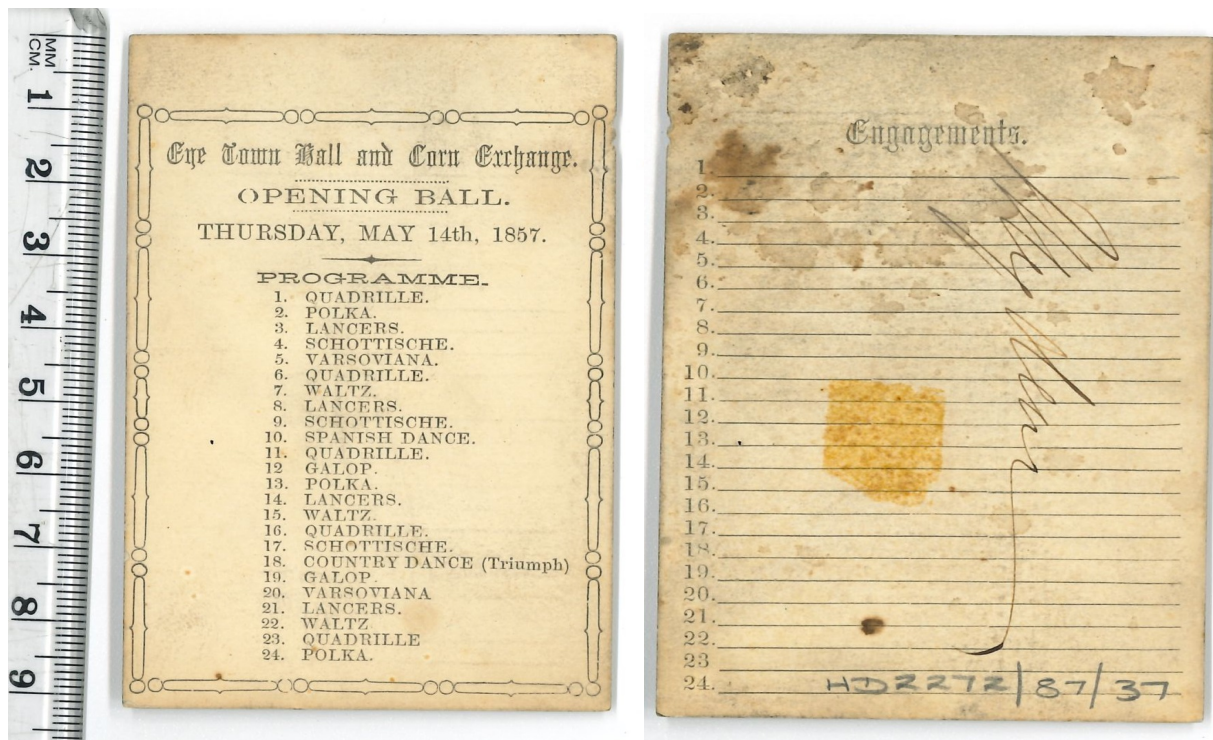 MM
CM.
1
2
3
4
5
6
7
8
9
Eye Town Hall and Corn Exchange.
OPENING BALL.
THURSDAY, MAY 14th, 1857.
PROGRAMME.
1. QUADRILLE.
2. POLKA.
3. LANCERS.
4. SCHOTTISCHE.
5. VARSOVIANA.
6. QUADRILLE.
7. WALTZ.
8. LANCERS.
9. SCHOTTISCHE.
10. SPANISH DANCE.
11. QUADRILLE.
12 GALOP.
13. POLKA.
14. LANCERS.
15. WALTZ.
16. QUADRILLE.
17. SCHOTTISCHE.
18. COUNTRY DANCE (Triumph)
19. GALOP.
20. VARSOVIANA
21. LANCERS.
22. WALTZ
23. QUADRILLE
24. POLKA.
Engagements.
1.
2.
3.
4.
5.
6.
7.
8.
9.
10.
11.
12.
13.
14.
15.
16.
17.
18.
19.
20.
21.
22.
23
24.
HD2272/87/37